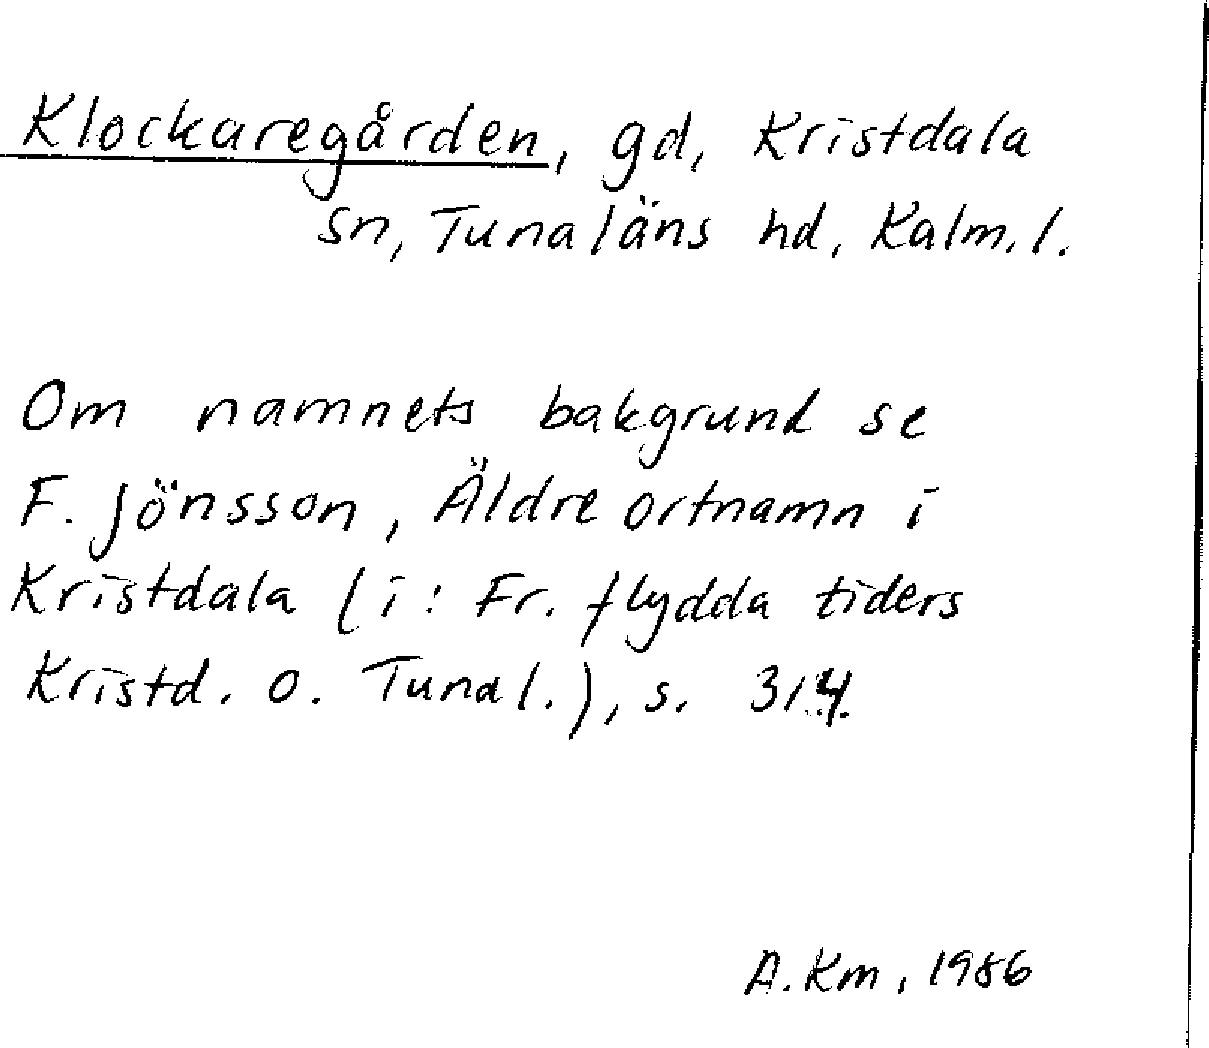 Klockaregården, gd, Kristdala
sn, Tunaläns hd, Kalm. l.
Om namnets bakgrund se
F. Jönsson, Äldre ortnamn i
Kristdala (i: Fr. flydda tiders
Kristd. o. Tunal.), s. 314.
A. Km, 1986